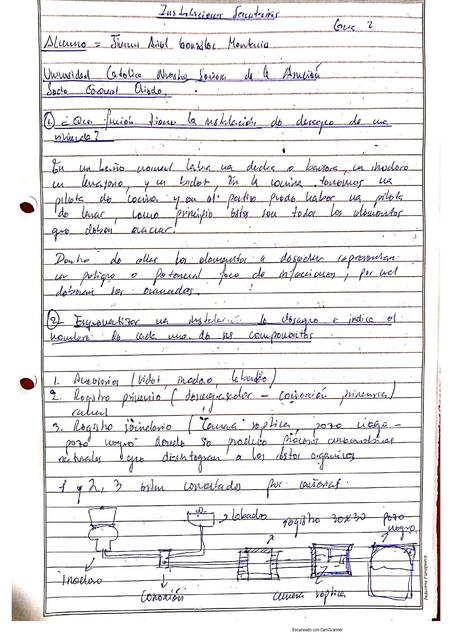 Instalaciones Sanitarias
Guia 2
Alumno = Ariel González
Universidad Catolica Nuestra Señora de la Asunción
Sede Coronel Oviedo.
1) ¿Que función tiene la instalación de desague de una
vivienda?
En un baño normal habra una ducha o bañera, un inodoro
un lavatorio, y un bidet, En la cocina tenemos una
pileta de cocina y en el patio puede haber una pileta
de lavar, como principio estos son todos los elementos
que deben evacuar
Dentro de ellos los elementos a desechar representan
un peligro o potencial foco de infecciones, por cual
deberan ser evacuados.
2) Esquematizar una instalación de desague e indica el
nombre de cada uno de sus componentes
1. Accesorios (Videt, inodoro, lavabo)
2. Registro primario (desengrasador - conexión primaria)
3. Registro secundario (camara septica, pozo ciego -
pozo negro) donde se produce procesos
naturales que desintegran a los restos organicos
1 y 2, 3 estan conectados por cañerias.
Lavabo
registro 30x30
pozo
negro
Inodoro
Conexión
camara septica
Escaneado con CamScanner